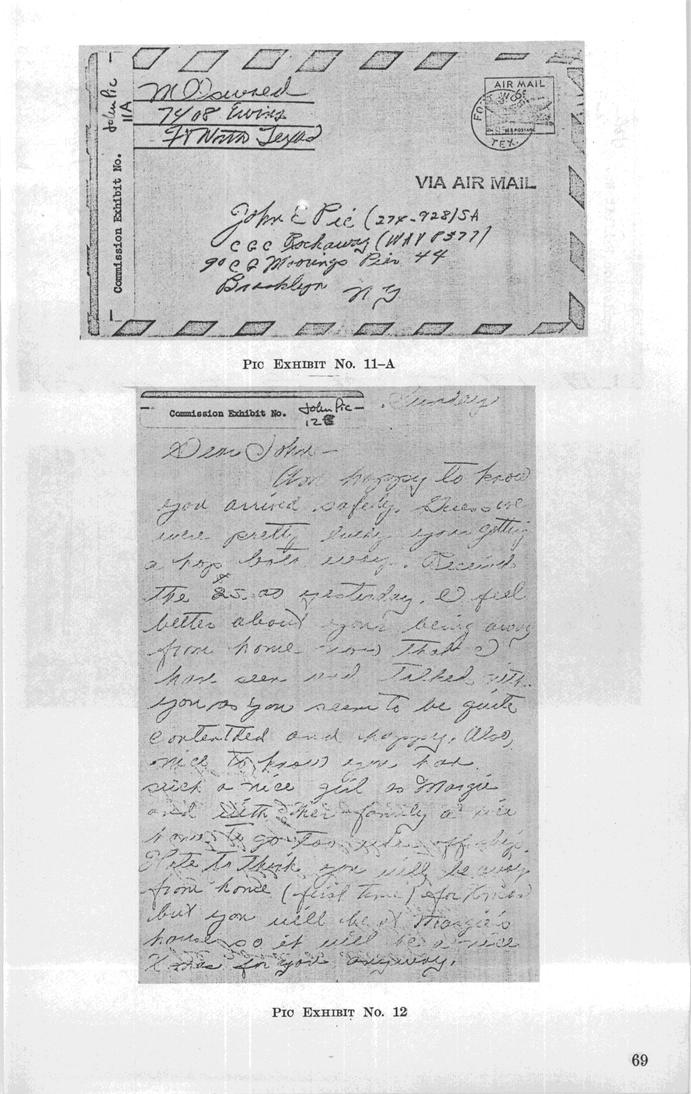 Commission Exhibit No.
John Pic
11A
M Oswald
7408 Ewing
Ft Worth Texas
AIR MAIL
TEX.
VIA AIR MAIL
John E Pic (274-928) SA
CGC Rockaway (WAV 8377)
Moorings Pier 44
Brooklyn
N Y
Pic Exhibit No. 11–A
Commission Exhibit No.
John Pic
12
Sunday
Dear John–
Am happy to know
you arrived safely. Guess we
were pretty lucky you getting
a hop both ways. Received
the $25.00 yesterday. I feel
better about your being away
from home now that I
have seen and talked with
you as you seem to be quite
contented and happy. Also,
nice to know you have
such a nice girl as Margie
and with her family a nice
home to go to when off ship.
Hate to think you will be away
from home (first time) for Xmas
but you will be at Margie's
house so it will be a nice
Xmas for you anyway.
Pic Exhibit No. 12
69